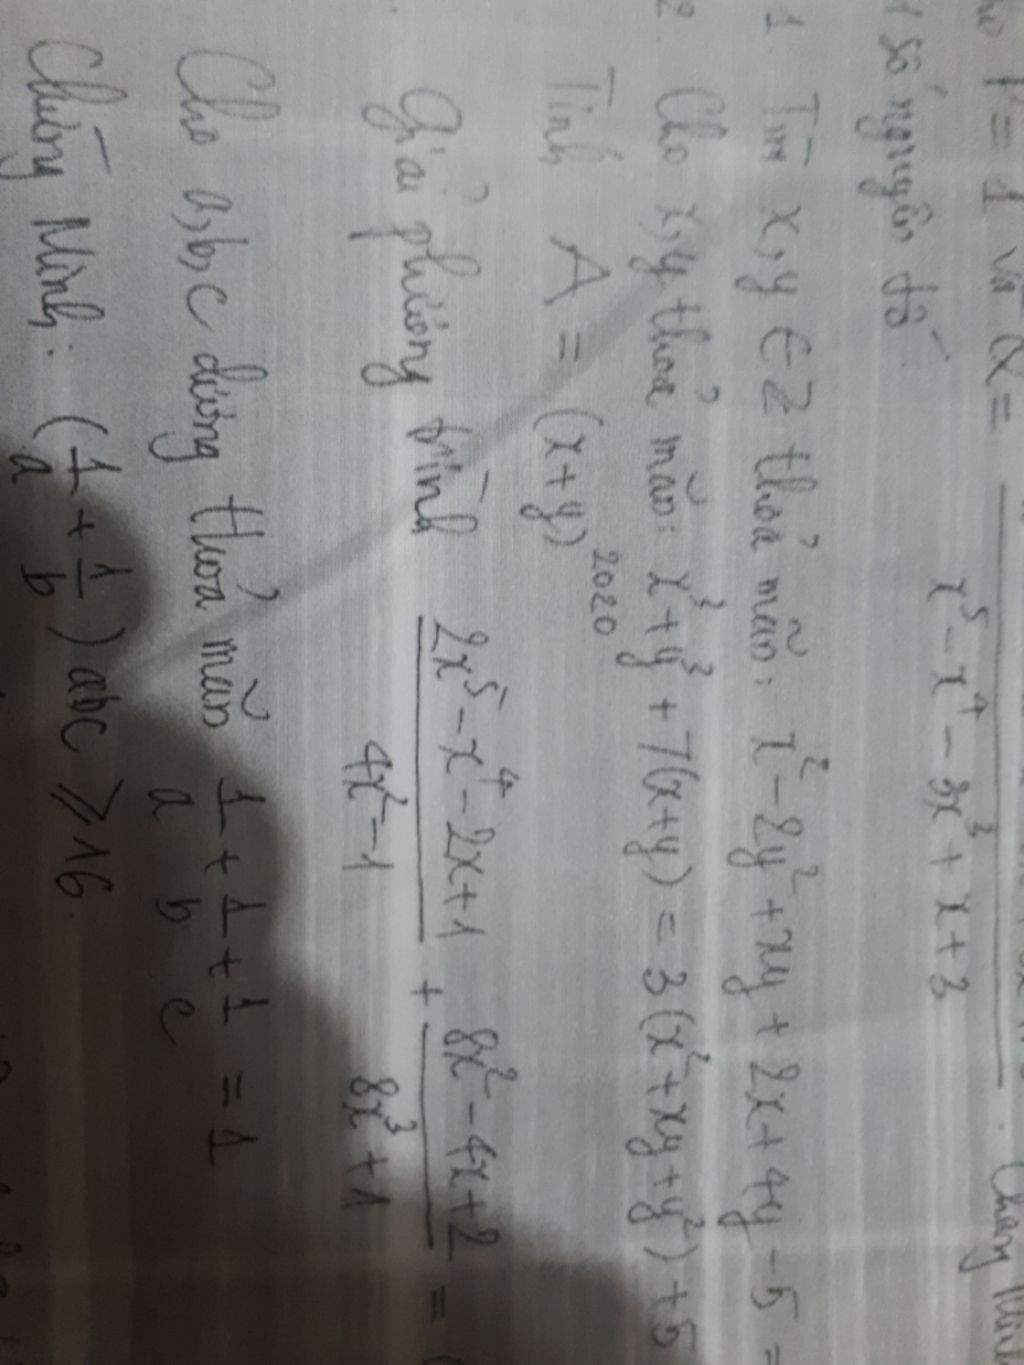 P = 1 và Q =
x⁵ - x⁴ - 3x³ + x + 3
số nguyên tố.
1. Tìm x, y ∈ Z thỏa mãn: x² - 2y² + xy + 2x + 4y - 5 =
2. Cho x, y thỏa mãn: x³ + y³ + 7(x+y) = 3(x² + xy + y²) + 5
Tính A = (x+y)²⁰²⁰
Giải phương trình (2x⁵ - x⁴ - 2x + 1)/(4x² - 1) + (8x² - 4x + 2)/(8x³ + 1) =
Cho a, b, c dương thỏa mãn 1/a + 1/b + 1/c = 1
Chứng Minh: (1/a + 1/b) abc ⩾ 16.